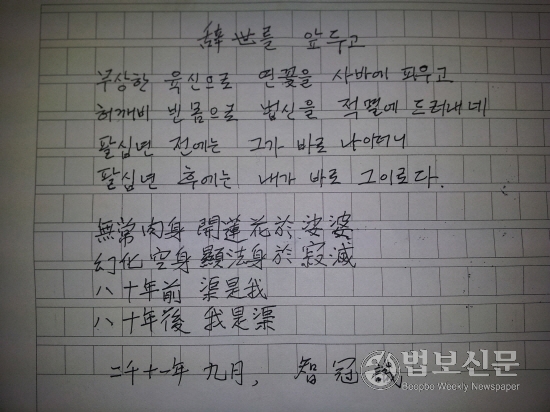 辭世를 앞두고
무상한 육신으로 연꽃을 사바에 피우고
허깨비 빈몸으로 법신을 적멸에 드러내네
팔십년 전에는 그가 바로 나이더니
팔십년 후에는 내가 바로 그이로다.
無常肉身 開蓮花於娑婆
幻化空身 顯法身於寂滅
八十年前 渠是我
八十年後 我是渠
二千十一年 九月, 智冠 識
법보신문
Beopbo Weekly Newspaper